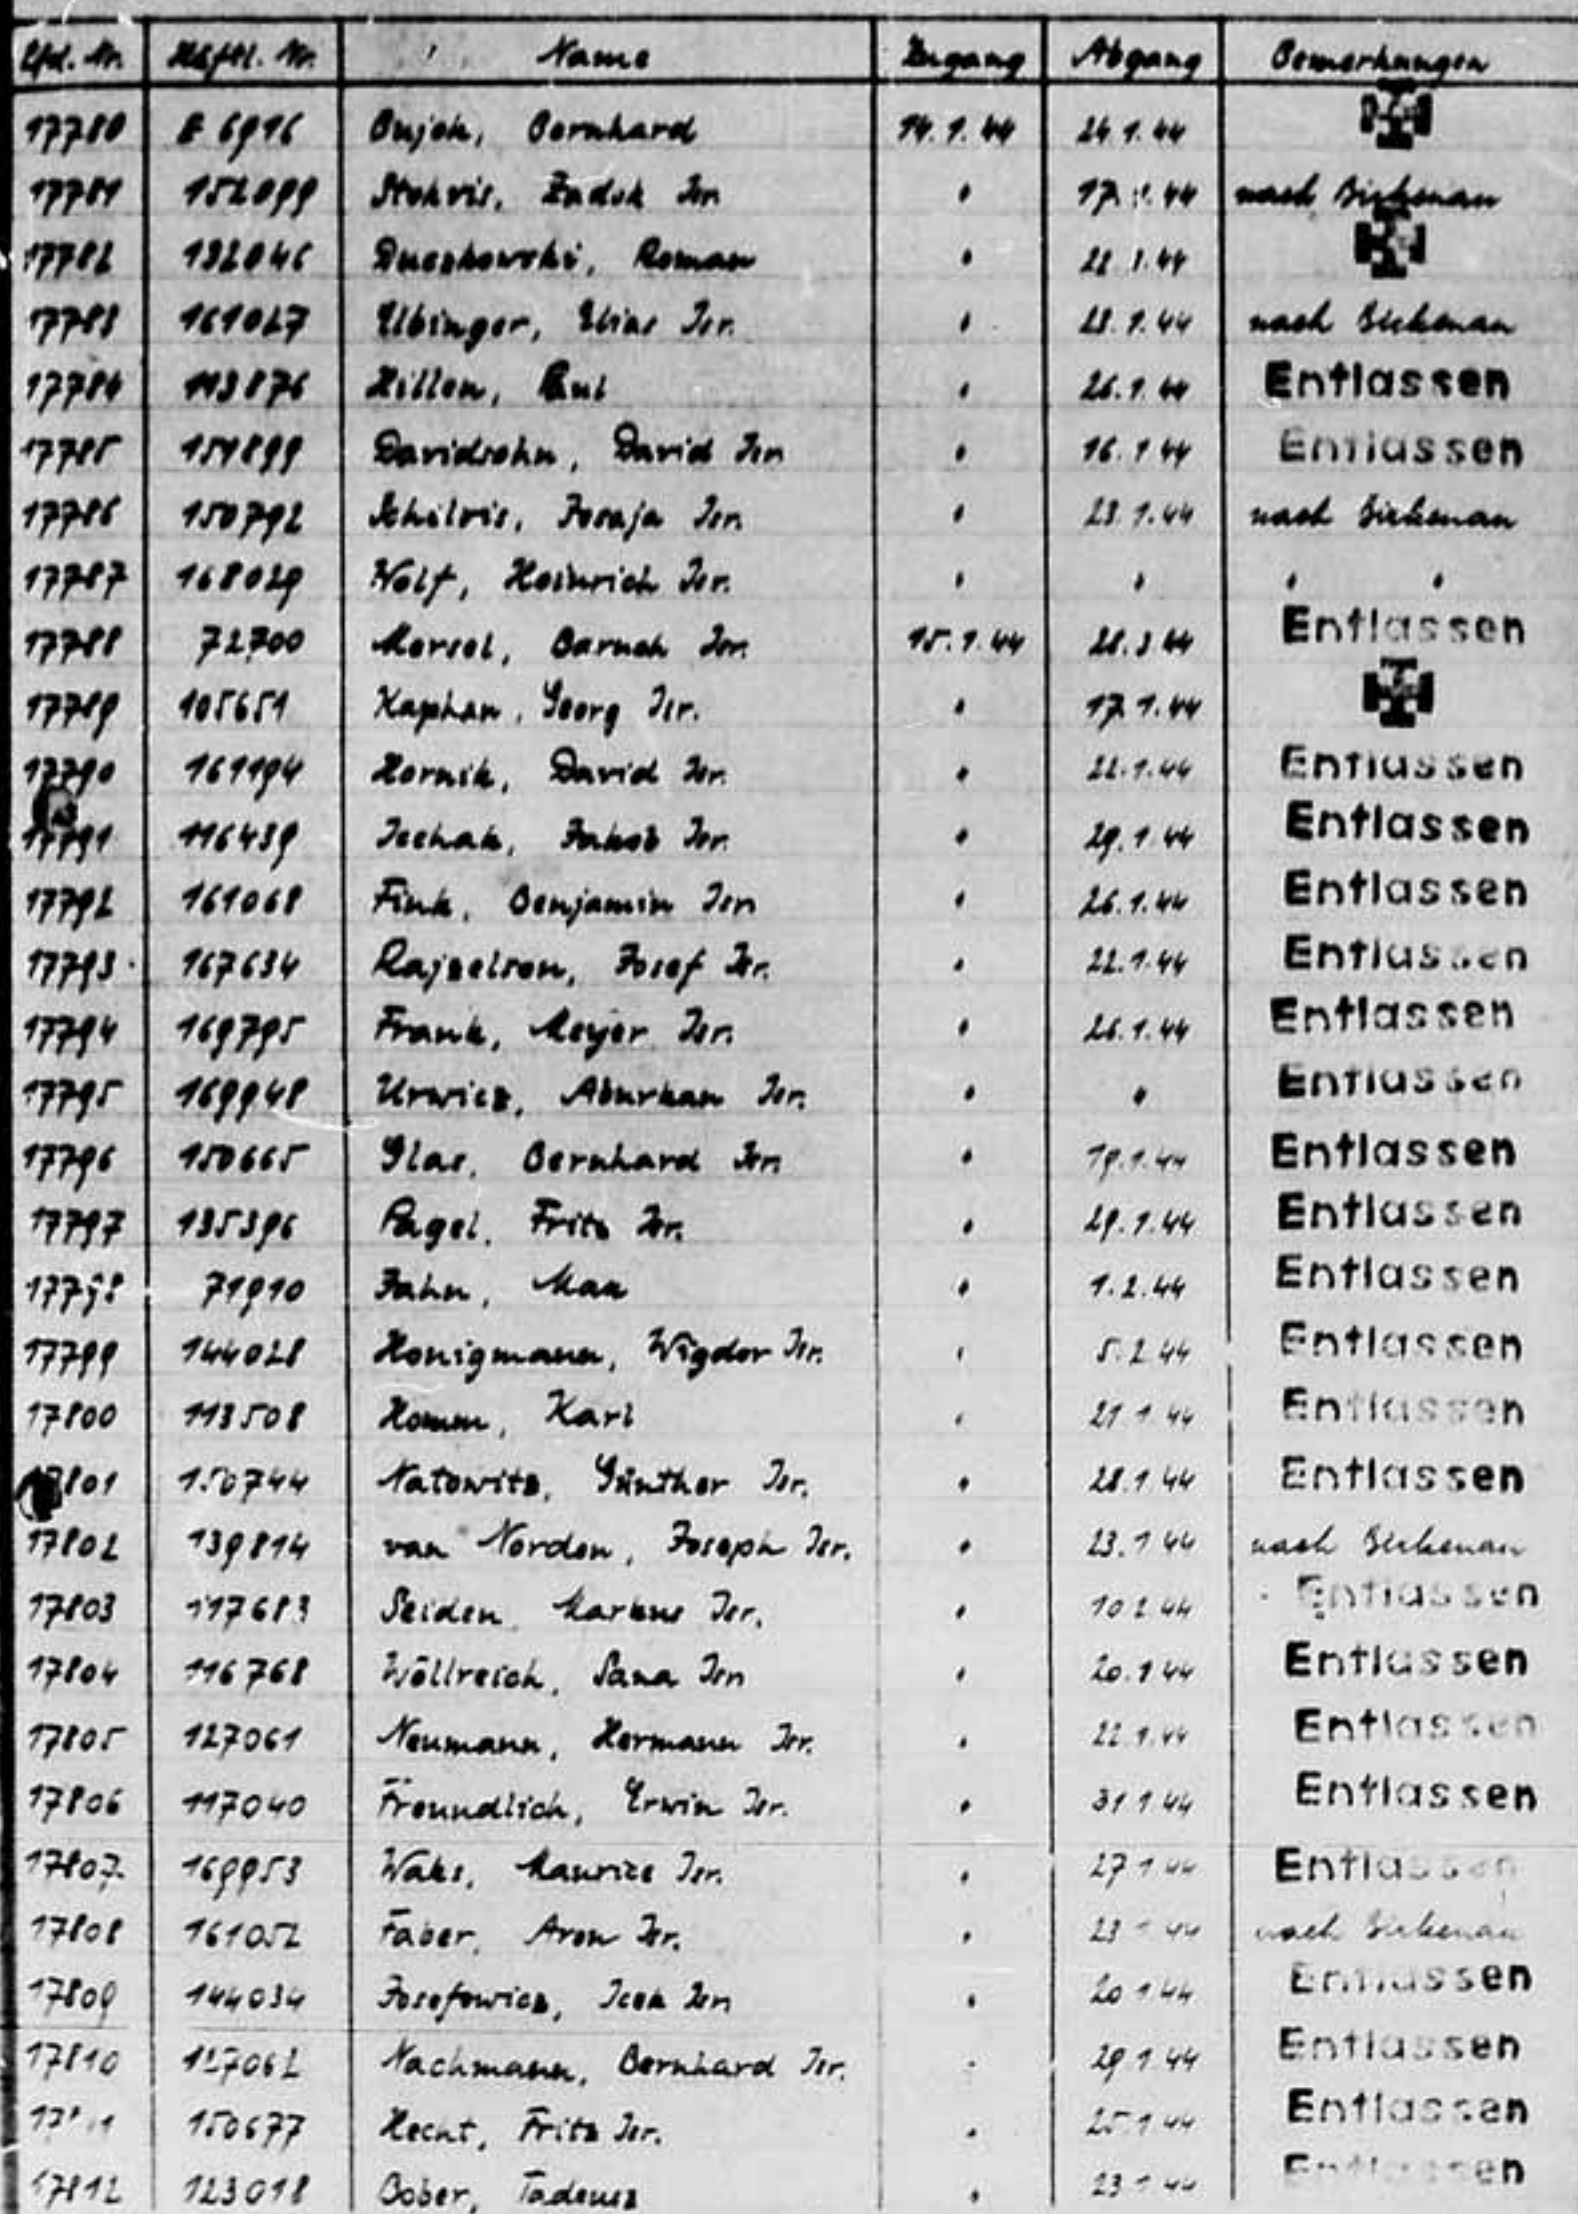 Lfd. Nr. Häftl. Nr. Name Zugang Abgang Bemerkungen
17780 E 6916 Bujok, Bernhard 14.1.44 24.1.44
17781 152099 Stokvis, Zadok Isr. " 17.1.44 nach Birkenau
17782 132046 Duczkowski, Roman " 22.1.44
17783 161027 Elbinger, Elias Isr. " 23.1.44 nach Birkenau
17784 113876 Hillen, Paul " 26.1.44 Entlassen
17785 151899 Davidsohn, David Isr. " 16.1.44 Entlassen
17786 150792 Schelvis, Jesaja Isr. " 23.1.44 nach Birkenau
17787 168029 Wolf, Heinrich Isr. " " " "
17788 72700 Baruch Isr. 15.1.44 28.3.44 Entlassen
17789 105651 Kaphan, Georg Isr. " 17.1.44
17790 161194 Hornik, David Isr. " 22.1.44 Entlassen
17791 116439 Icchak, Jakob Isr. " 29.1.44 Entlassen
17792 161068 Fink, Benjamin Isr. " 26.1.44 Entlassen
17793 167634 Rajzelson, Josef Isr. " 22.1.44 Entlassen
17794 169795 Frank, Meyer Isr. " 26.1.44 Entlassen
17795 169948 Urwicz, Isr. " " Entlassen
17796 150665 Glas, Bernhard Isr. " 19.1.44 Entlassen
17797 135396 Pagel, Fritz Isr. " 29.1.44 Entlassen
17798 71910 Jahn, Max " 1.2.44 Entlassen
17799 144028 Honigmann, Wigdor Isr. " 5.2.44 Entlassen
17800 113508 Homm, Karl " 21.1.44 Entlassen
17801 150744 Natowitz, Günther Isr. " 28.1.44 Entlassen
17802 139814 van Norden, Joseph Isr. " 23.1.44 nach Birkenau
17803 117683 Seiden, Markus Isr. " 10.2.44 Entlassen
17804 116768 Wöllreich, Sana Isr. " 20.1.44 Entlassen
17805 127061 Neumann, Hermann Isr. " 22.1.44 Entlassen
17806 117040 Freundlich, Erwin Isr. " 31.1.44 Entlassen
17807 169953 Waks, Maurice Isr. " 27.1.44 Entlassen
17808 161052 Faber, Aron Isr. " 23.1.44 nach Birkenau
17809 144034 Josefowicz, Icek Isr. " 20.1.44 Entlassen
17810 127062 Nachmann, Bernhard Isr. " 29.1.44 Entlassen
150677 Hecht, Fritz Isr. " 25.1.44 Entlassen
17812 123018 Bober, Tadeusz " 23.1.44 Entlassen